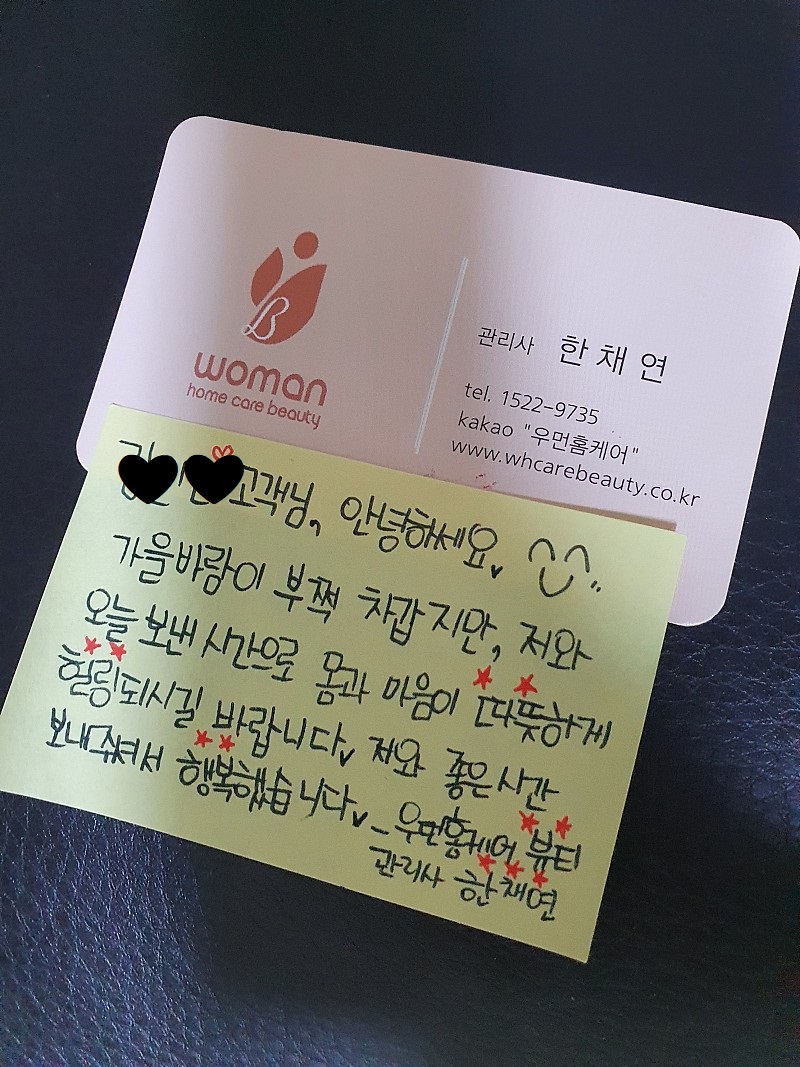 B
woman
home care beauty
관리사 한채연
tel. 1522-9735
kakao "우먼홈케어"
www.whcarebeauty.co.kr
고객님, 안녕하세요
가을바람이 부쩍 차갑지만, 저와
오늘 보낸 시간으로 몸과 마음이 따뜻하게
힐링되시길 바랍니다 저와 좋은 시간
보내주셔서 행복했습니다
- 우먼홈케어 뷰티
관리사 한채연